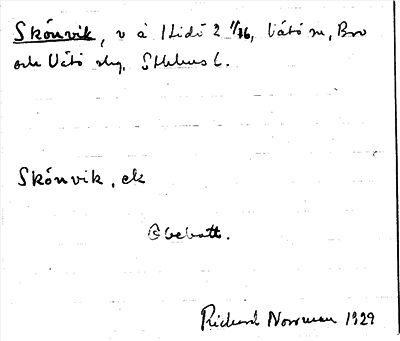 Skönvik, v å Hidö 2 1/36, Vätö sn, Bro
och Vätö skg, Sthlms l.
Skönvik, ek
Obebott.
Richard Norrman 1929